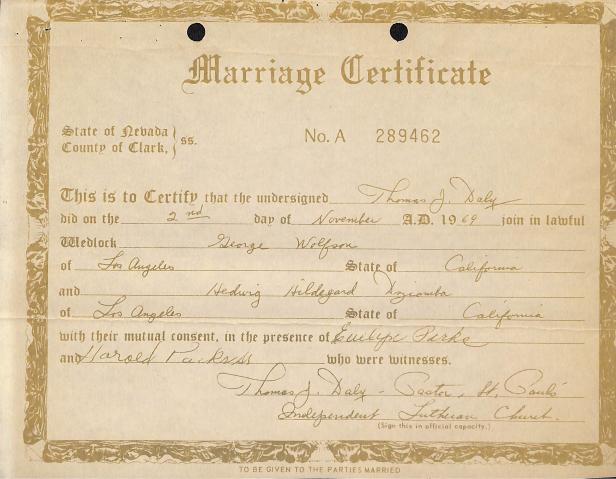 Marriage Certificate
State of Nevada
County of Clark, } ss.
No. A 289462
This is to Certify that the undersigned Thomas J. Daly
did on the 2nd day of November A.D. 1969 join in lawful
Wedlock George Wolfson
of Los Angeles State of California
and Hedwig Hildegard
of Los Angeles State of California
with their mutual consent, in the presence of Evelyn Parks
and Harold Parks who were witnesses.
Thomas J. Daly - Pastor, St. Pauls'
Independent Lutheran Church.
(Sign this in official capacity.)
TO BE GIVEN TO THE PARTIES MARRIED